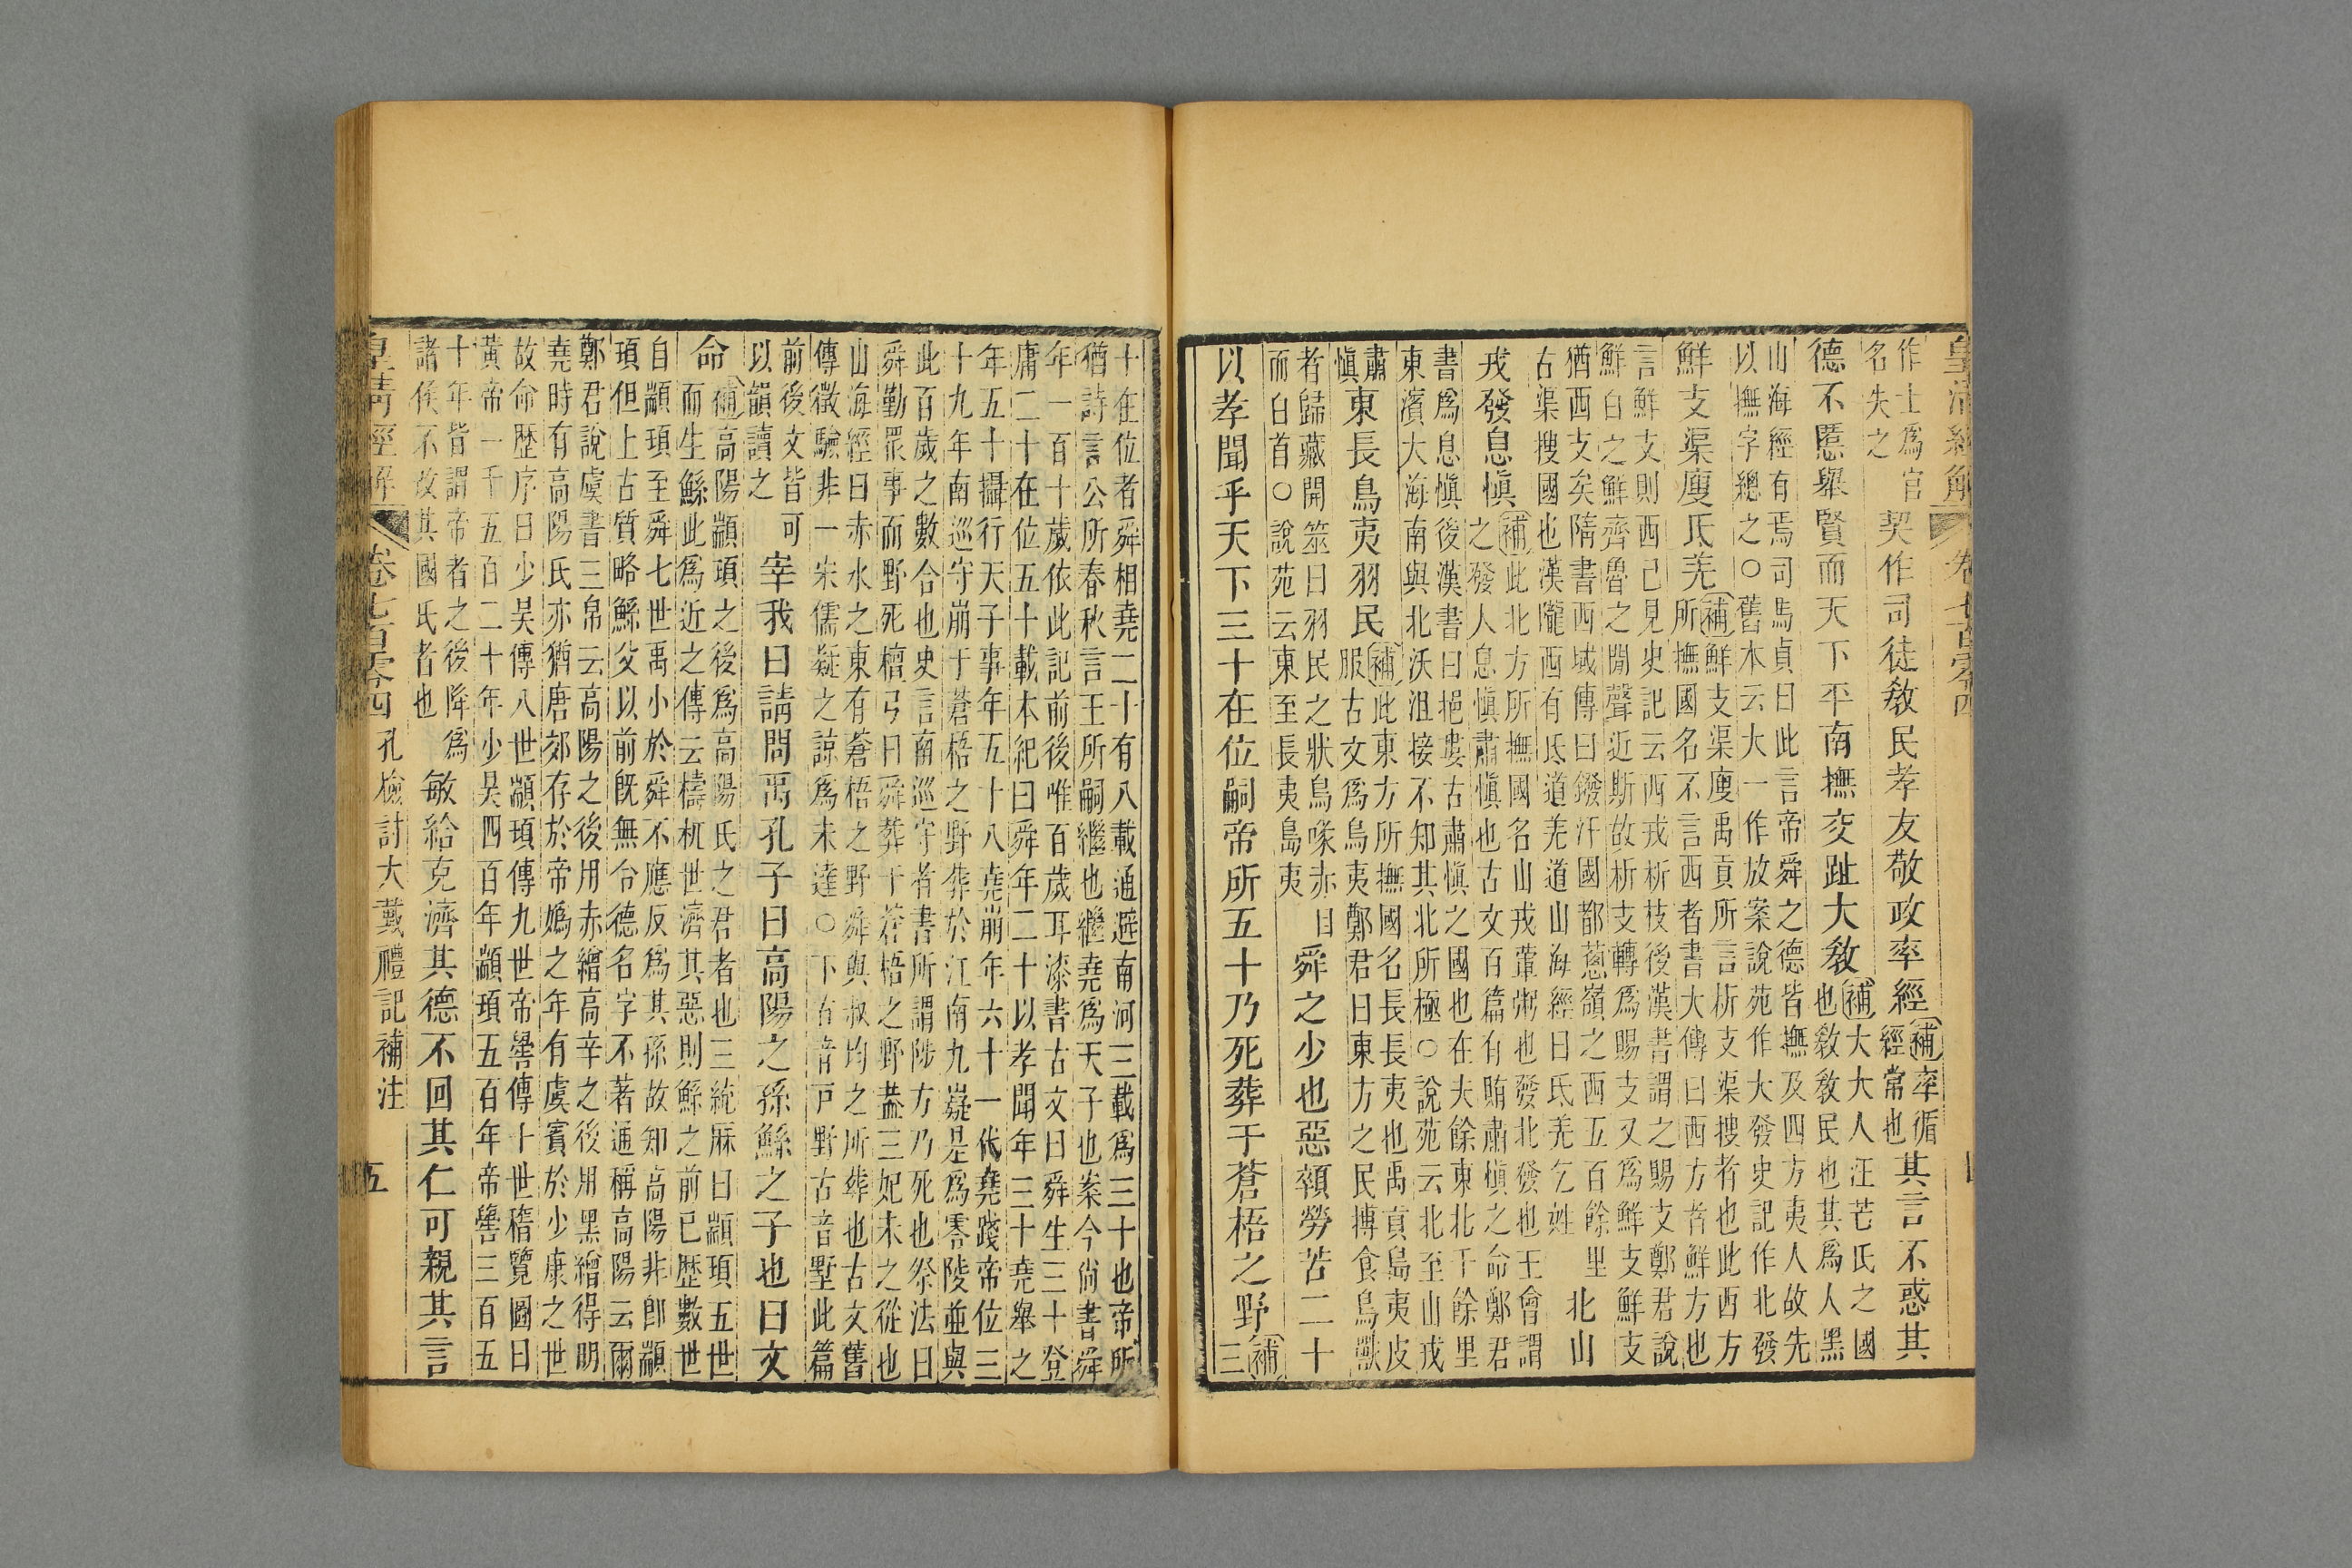 皇清經解 卷七百零四
作士爲官名失之契作司徒敎民孝友敬政率經補率循經常也其言不惑其
德不慝舉賢而天下平南撫交趾大敎補大大人汪芒氏之國也敎敎民也其爲人黑
山海經有焉司馬貞曰此言帝舜之德皆撫及四方夷人故先
以撫字總之○舊本云大一作放案說苑作大發史記作北發
鮮支渠廋氐羌補鮮支渠廋禹貢所言析支渠搜者也此西方所撫國名不言西者書大傳曰西方者鮮方也
言鮮支則西已見史記云西戎析枝後漢書謂之賜支鄭君說
鮮白之鮮齊魯之閒聲近斯故析支轉爲賜支又爲鮮支鮮支
猶西支矣隋書西域傳曰鏺汗國都蔥嶺之西五百餘里
古渠搜國也漢隴西有氐道羌道山海經曰氐羌乞姓北山
戎發息愼補此北方所撫國名山戎葷粥也發北發也王會謂之發人息愼肅愼也古文百篇有賄肅愼之命鄭君
書爲息愼後漢書曰挹婁古肅愼之國也在夫餘東北千餘里
東濱大海南與北沃沮接不知其北所極○說苑云北至山戎
肅愼東長鳥夷羽民補此東方所撫國名長長夷也禹貢島夷皮服古文爲鳥夷鄭君曰東方之民搏食鳥獸
者歸藏開筮曰羽民之狀鳥喙赤目而白首○說苑云東至長夷島夷舜之少也惡顇勞苦二十
以孝聞乎天下三十在位嗣帝所五十乃死葬于蒼梧之野補三
十在位者舜相堯二十有八載通避南河三載爲三十也帝所
猶詩言公所春秋言王所嗣繼也繼堯爲天子也案今尙書舜
年一百十歲依此記前後唯百歲耳漆書古文曰舜生三十登
庸二十在位五十載本紀曰舜年二十以孝聞年三十堯舉之
年五十攝行天子事年五十八堯崩年六十一代堯踐帝位三
十九年南巡守崩于蒼梧之野葬於江南九嶷是爲零陵並與
此百歲之數合也史言南巡守者書所謂陟方乃死也祭法曰
舜勤眾事而野死檀弓曰舜葬于蒼梧之野蓋三妃未之從也
山海經曰赤水之東有蒼梧之野舜與叔均之所葬也古文舊
傳徵驗非一宋儒疑之諒爲未達○下有音戸野古音墅此篇
前後文皆可以韻讀之宰我曰請問禹孔子曰高陽之孫鯀之子也曰文
命補高陽顓頊之後爲高陽氏之君者也三統厤曰顓頊五世而生鯀此爲近之傳云檮杌世濟其惡則鯀之前已歷數世
自顓頊至舜七世禹小於舜不應反爲其孫故知高陽非卽顓
頊但上古質略鯀父以前旣無令德名字不著通稱高陽云爾
鄭君說虞書三帛云高陽之後用赤繒高辛之後用黑繒得明
堯時有高陽氏亦猶唐郊存於帝嬀之年有虞賓於少康之世
故命歷序曰少吴傳八世顓頊傳九世帝嚳傳十世稽覽圖曰
黃帝一千五百二十年少吴四百年顓頊五百年帝嚳三百五
十年皆謂帝者之後降爲諸侯不改其國氏者也敏給克濟其德不回其仁可親其言
皇清經解 卷七百零四 孔檢討大戴禮記補注 五